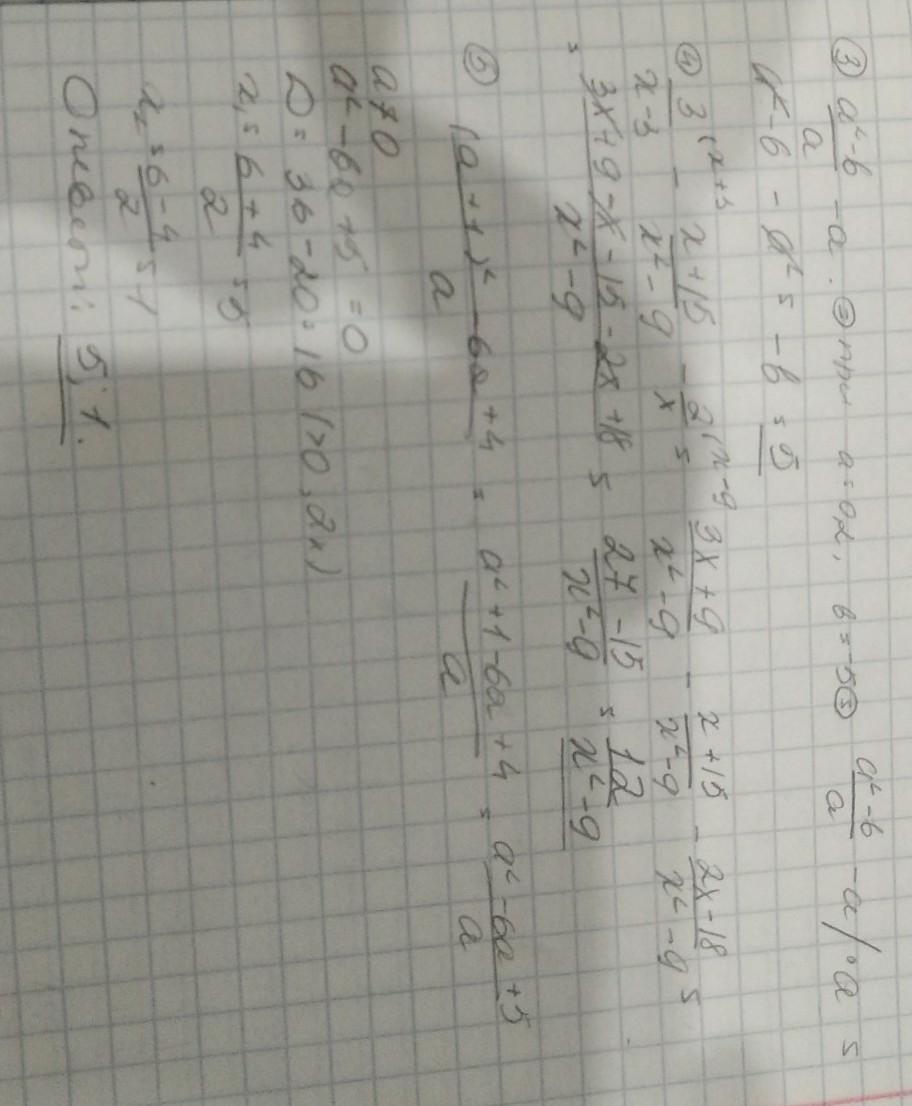 ③ a²-b/a - a. ⊜ при a=02, b=-5 ⊜ a²-b/a - a /·a =
a²-b - a² = -b = 5
④ 3(x+3/x-3 - x+15/x²-9 - 2(x-9/x = 3x+9/x²-9 - x+15/x²-9 - 2x-18/x²-9 =
= 3x+9-x-15-2x+18/x²-9 = 27-15/x²-9 = 12/x²-9
⑤ (a+1)²-6a+4/a = a²+1-6a+4/a = a²-6a+5/a
a≠0
a²-6a+5=0
D=36-20=16 (>0, 2к)
x₁=6+4/2=5
x₂=6-4/2=1
Ответ: 5; 1.